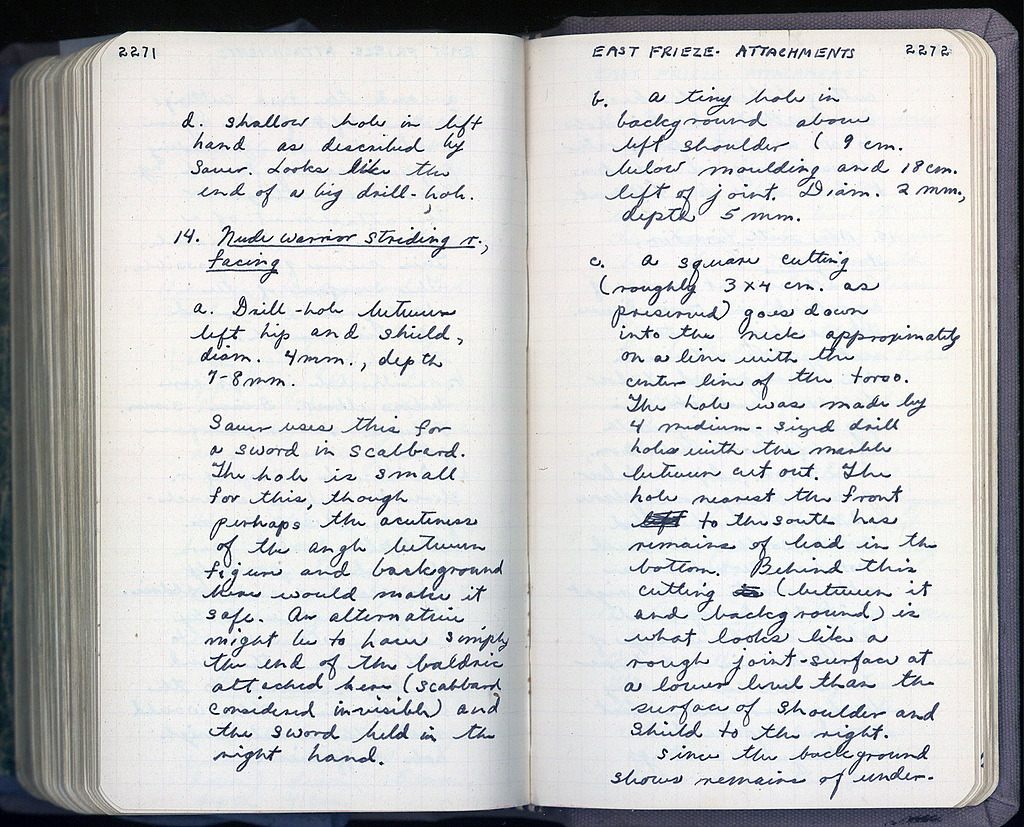 2271
d. shallow hole in left
hand as described by
Sauer. Looks like the
end of a big drill-hole.
14. Nude warrior striding r.,
facing
a. Drill-hole between
left hip and shield,
diam. 4mm., depth
7-8mm.
Sauer uses this for
a sword in scabbard.
The hole is small
for this, though
perhaps the acuteness
of the angle between
figure and background
here would make it
safe. An alternative
might be to have simply
the end of the baldric
attached here (scabbard
considered invisible) and
the sword held in the
right hand.
EAST FRIEZE- ATTACHMENTS 2272
b. A tiny hole in
background above
left shoulder (9 cm.
below moulding and 18cm.
left of joint. Diam. 2 mm.,
depth 5 mm.
c. A square cutting
(roughly 3x4 cm. as
preserved) goes down
into the neck approximately
on a line with the
center line of the torso.
The hole was made by
4 medium-sized drill
holes with the marble
between cut out. The
hole nearest the front
to the south has
remains of lead in the
bottom. Behind this
cutting (between it
and background) is
what looks like a
rough joint-surface at
a lower level than the
surface of shoulder and
shield to the right.
Since the background
shows remains of under-